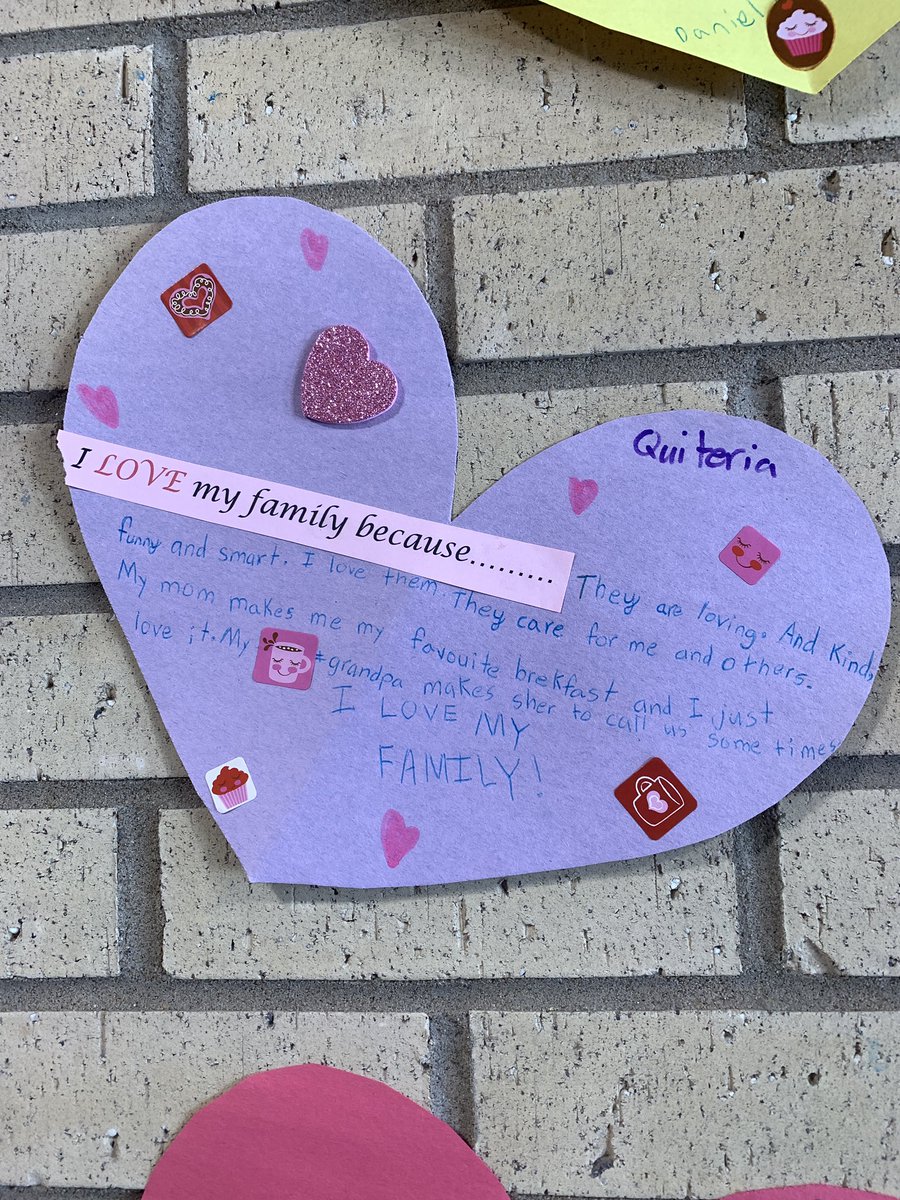 Daniel
Quiteria
I LOVE my family because.........
They are loving. And Kind,
funny and smart. I love them. They care for me and others.
My mom makes me my favouite brekfast and I just
love it. My grandpa makes sher to call us some times
I LOVE MY
FAMILY!